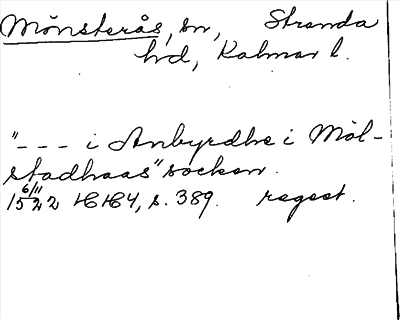 Mönsterås, sn, Stranda
hd, Kalmar l.
"--- i Anbyrdhe i Möl-
stadhaas" socken.
15 6/11 22 HH4, s. 389. regest.